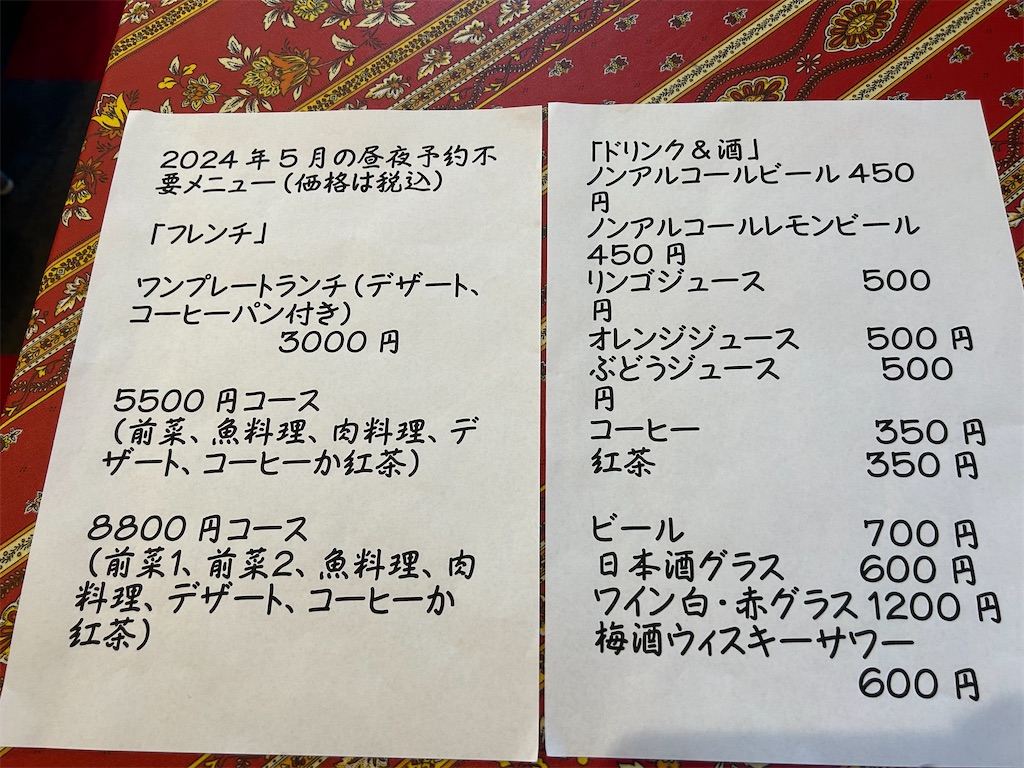 2024年5月の昼夜予約不
要メニュー(価格は税込)
「フレンチ」
ワンプレートランチ(デザート、
コーヒーパン付き)
3000円
5500円コース
(前菜、魚料理、肉料理、デ
ザート、コーヒーか紅茶)
8800円コース
(前菜1、前菜2、魚料理、肉
料理、デザート、コーヒーか
紅茶)
「ドリンク&酒」
ノンアルコールビール 450
円
ノンアルコールレモンビール
450円
リンゴジュース 500
円
オレンジジュース 500円
ぶどうジュース 500
円
コーヒー 350円
紅茶 350円
ビール 700円
日本酒グラス 600円
ワイン白・赤グラス 1200円
梅酒ウィスキーサワー
600円